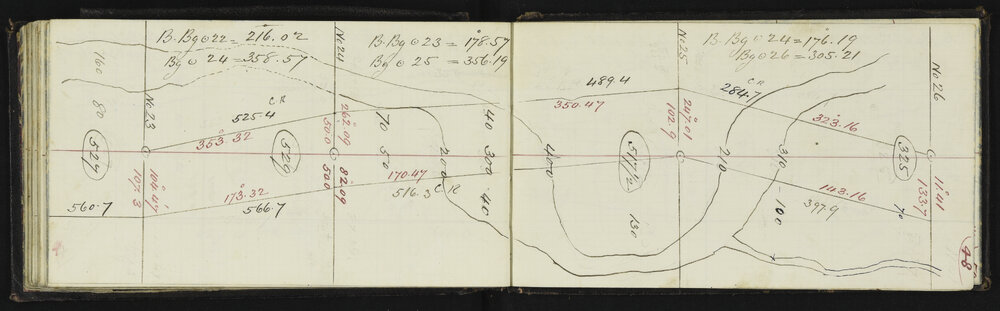 B. Bg ⊙ 22 = 216.02
Bg ⊙ 24 = 358.57
No 24
B. Bg ⊙ 23 = 178.57
Bg ⊙ 25 = 356.19
No 25
B. Bg ⊙ 24 = 176.19
Bg ⊙ 26 = 305.21
No 26
160
80
No 23
CR
525.4
353.32
262.09
50.0
70
50
40
300
40
489.4
350.47
247.01
102.9
CR
284.7
323.16
527
529
517½
325
104.47
107.3
82.09
500
170.47
516.3 CR
200
400
210
310
11.41
133.7
560.7
173.32
566.7
130
100
143.16
397.9
70
48